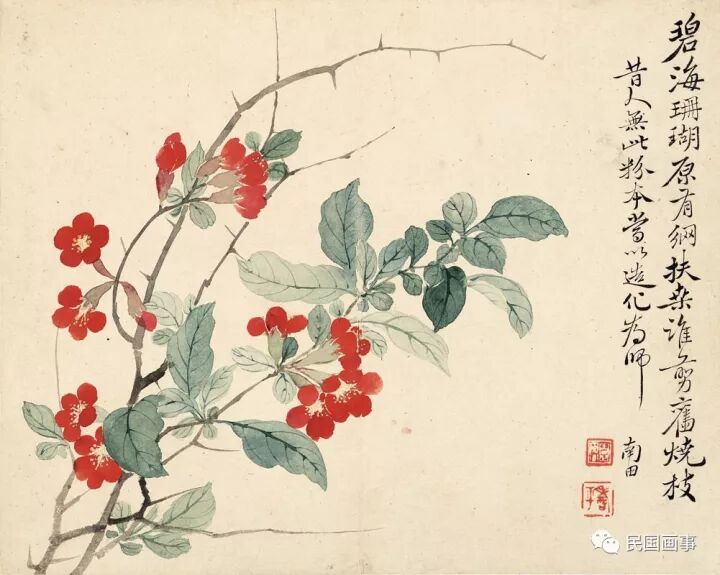 碧海珊瑚原有網扶桑誰剪舊燒枝
昔人無此粉本當以造化為師
南田
民国画事